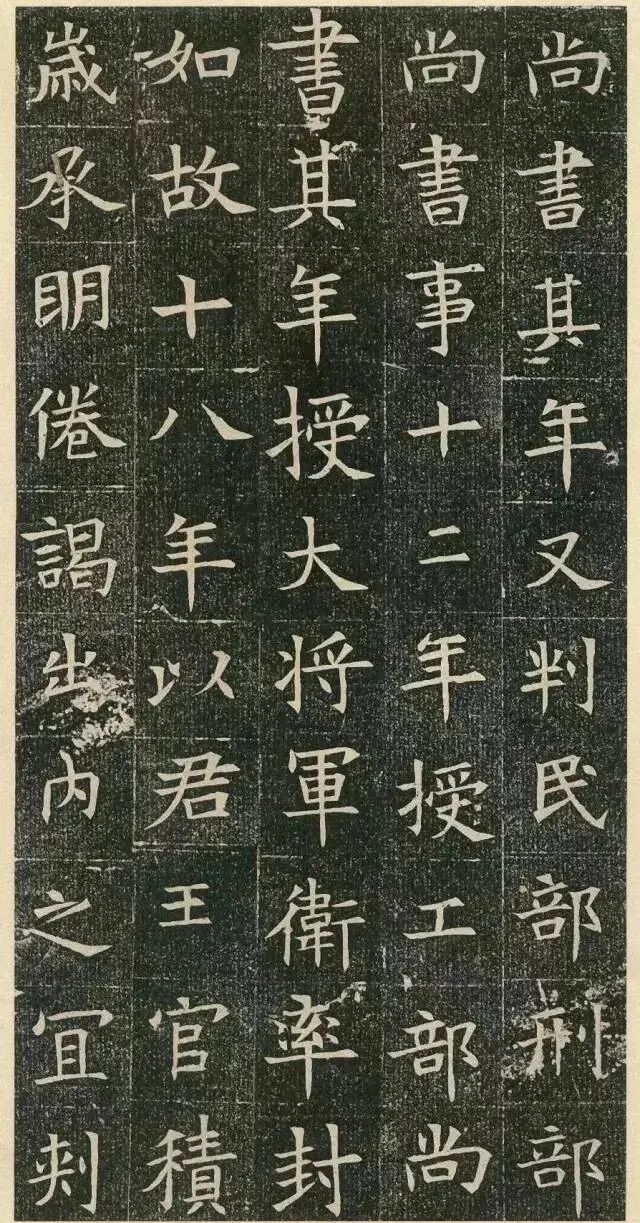 尚書其年又判民部刑部
尚書事十二年授工部尚
書其年授大將軍衛率封
如故十八年以君王官積
歳承明倦謁出内之冝刾